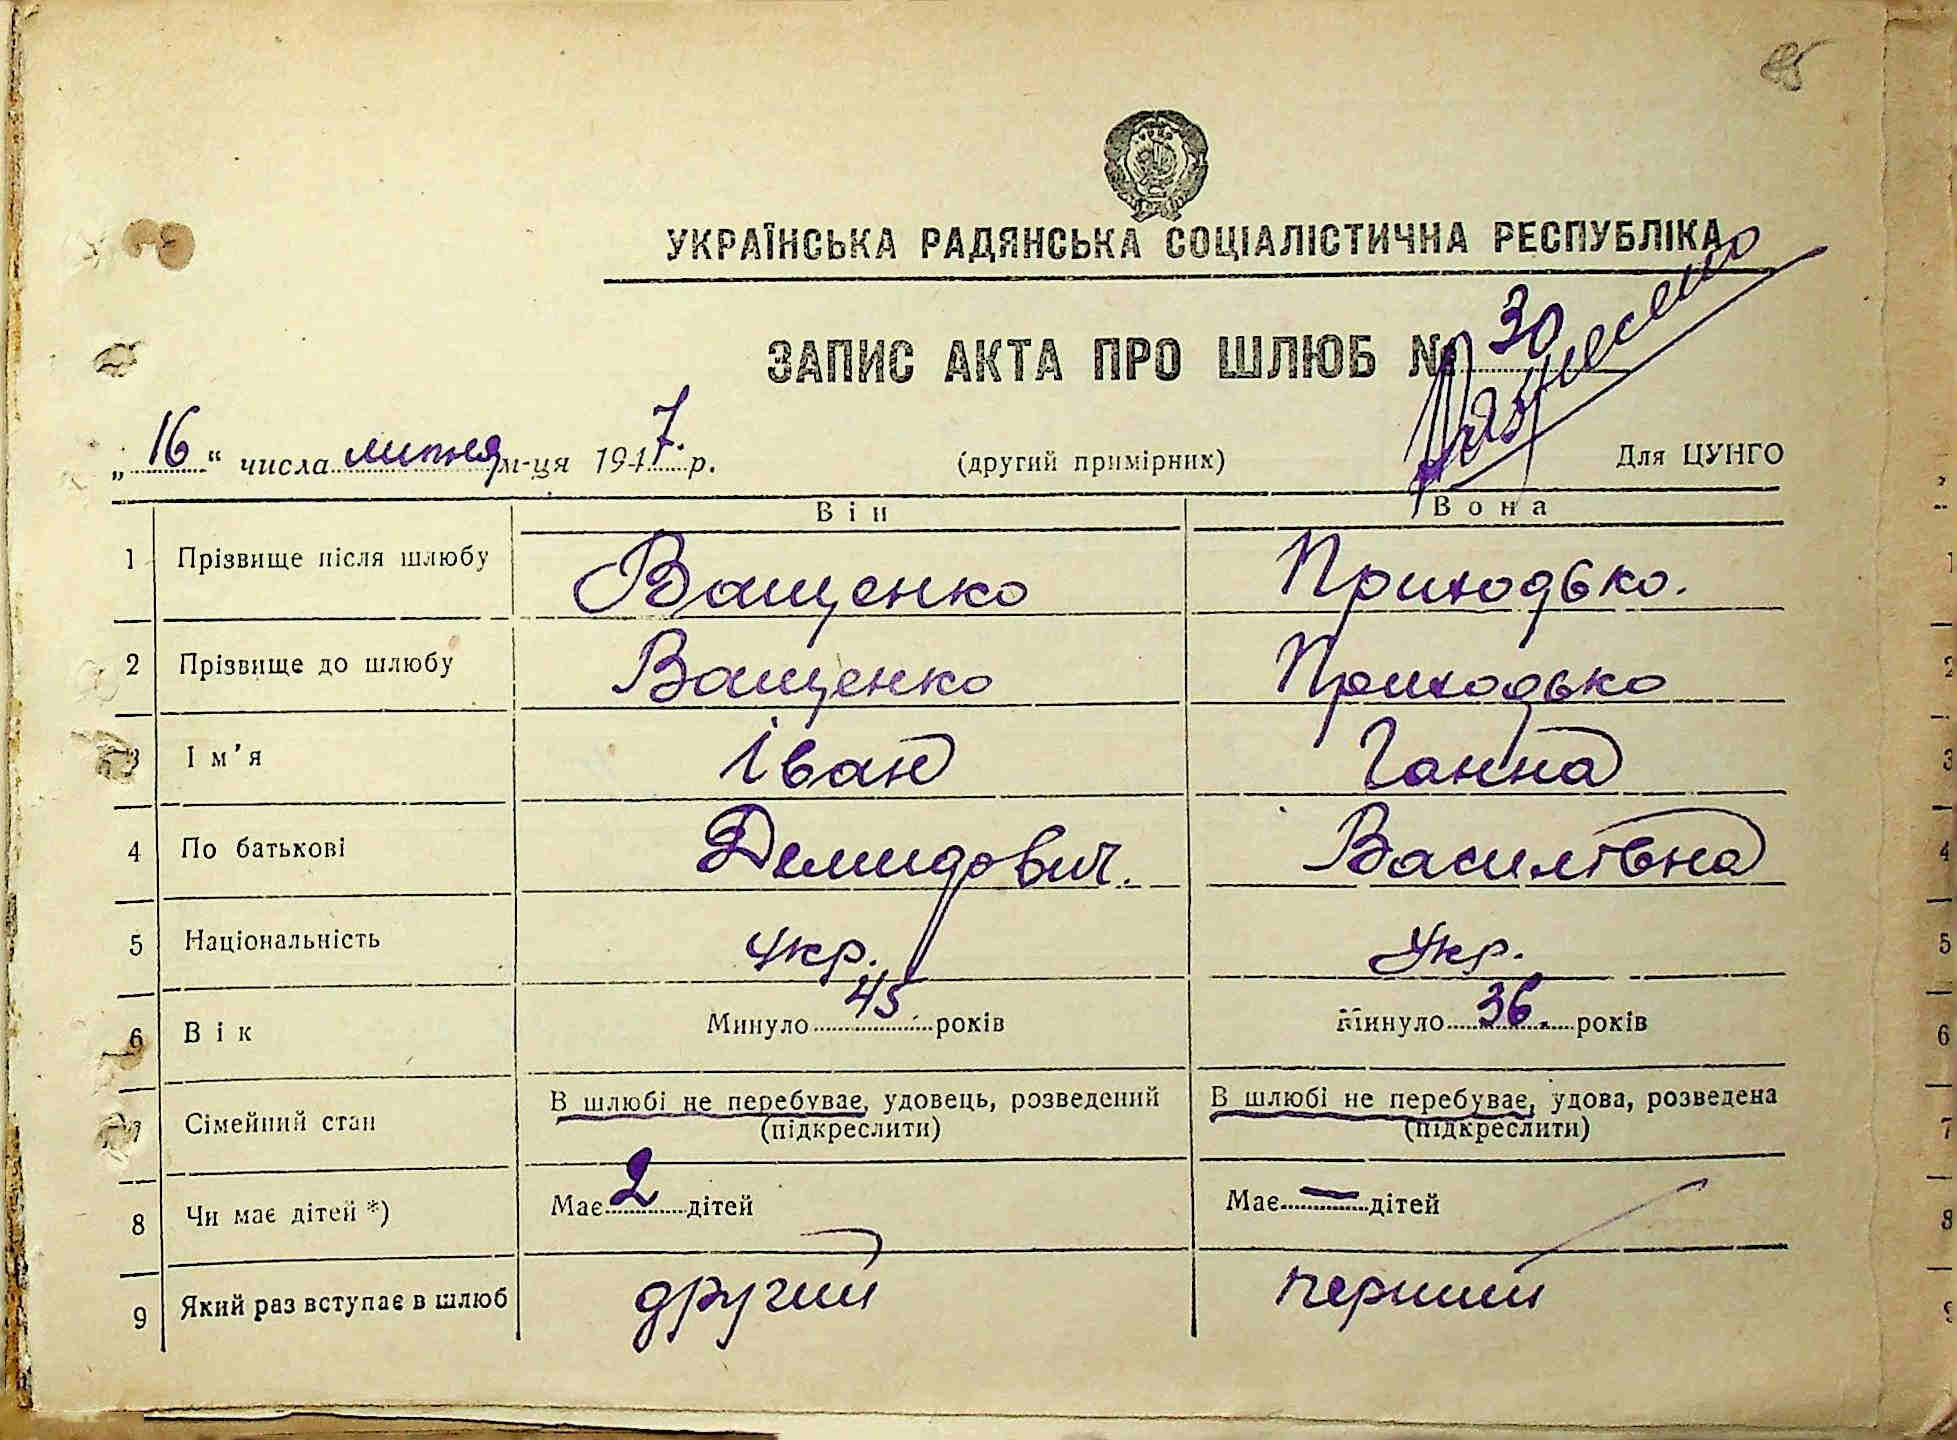 УКРАЇНСЬКА РАДЯНСЬКА СОЦІАЛІСТИЧНА РЕСПУБЛІКА
ЗАПИС АКТА ПРО ШЛЮБ № 30
Рознесено
„16“ числа липня м-ця 1947. р. (другий примірник) Для ЦУНГО
Він Вона
1 Прізвище після шлюбу Ващенко Приходько.
2 Прізвище до шлюбу Ващенко Приходько
3 Ім’я Іван Ганна
4 По батькові Демидович. Василівна
5 Національність укр. Укр.
6 Вік Минуло 45 років Минуло 36. років
7 Сімейний стан В шлюбі не перебуває, удовець, розведений (підкреслити) В шлюбі не перебуває, удова, розведена (підкреслити)
8 Чи має дітей *) Має 2 дітей Має — дітей
9 Який раз вступає в шлюб другий перший